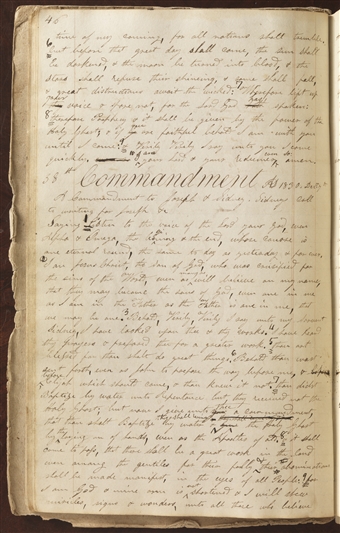 46
time of my coming, for all nations shall tremble.
but before that great day shall come, the Sun shall
be darkened, & the moon be turned into blood, & the
Stars shall refuse their shining, & some shall fall,
& great distructions await the wicked. Wherefore lift up
your voice & spare not, for the Lord God hath spoken.
8 therefore Prophecy & it shall be given by the power of the
Holy Ghost; & if ye are faithful behold I am with you
until I come; & Verily Verily I say unto you I come
quickly, I am your Lord & your Redeemer amen.
38th Commandment AD 1830
A Commandment to Joseph & Sidney. Sidney call
to writing for Joseph &c
Saying Listen to the voice of the Lord your God, even
Alpha & Omega, the begining & the end, whose course is
one eternal round, the same to day as yesterday & for ever,
I am Jesus Christ, the Son of God, who was crucified for
the sins of the World, even as will believe on my name,
that they may become the sons of God, even one in me
as I am in the Father as the Father is one in me, that
we may be one. 3 Behold, Verily, Verily I say unto my servent
Sidney, I have looked upon thee & thy works. 4 I have heard
thy prayers & prepared thee for a greater work. 5 thou art
blessed for thou shalt do great things. 6 Behold thou wast
sent forth, even as John to prepare the way before me, & before
Elijah which should come, & thou knew it not. 7 thou didst
Baptize by water unto repentance but they received not the
Holy Ghost; but now I give unto thee a commandment,
that thou shalt Baptize by water & the holy Ghost
by laying on of hands, even as the Apostles of old. 8 & it shall
come to pass, that there shall be a great work in the land
even among the gentiles for their folly & their abominations
shall be made manifest, in the eyes of all People; 9 for
I am God & mine arm is not shortened & I will shew
miracles, signs & wonders, unto all those who believe